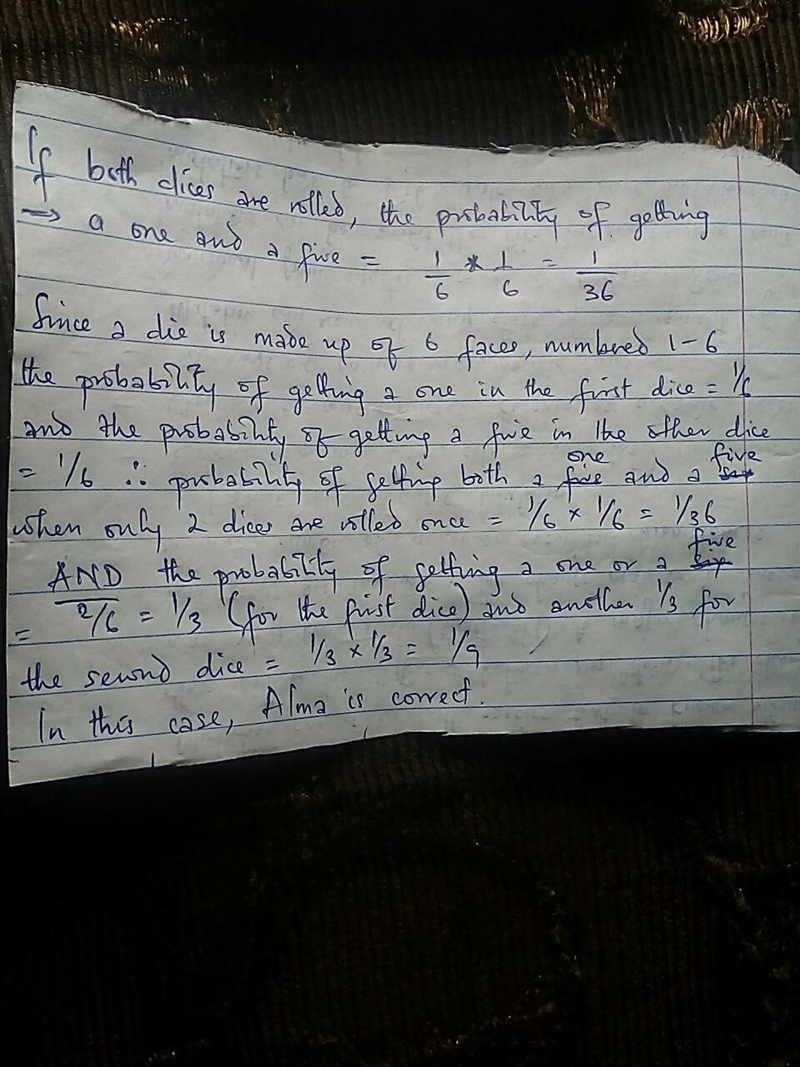 If both dices are rolled, the probability of getting
⇒ a one and a five = 1/6 * 1/6 = 1/36
Since a die is made up of 6 faces, numbered 1-6
the probability of getting a one in the first dice = 1/6
and the probability of getting a five in the other dice
= 1/6 ∴ probability of getting both a one and a five
when only 2 dices are rolled once = 1/6 × 1/6 = 1/36
AND the probability of getting a one or a five
= 2/6 = 1/3 (for the first dice) and another 1/3 for
the second dice = 1/3 × 1/3 = 1/9
In this case, Alma is correct.